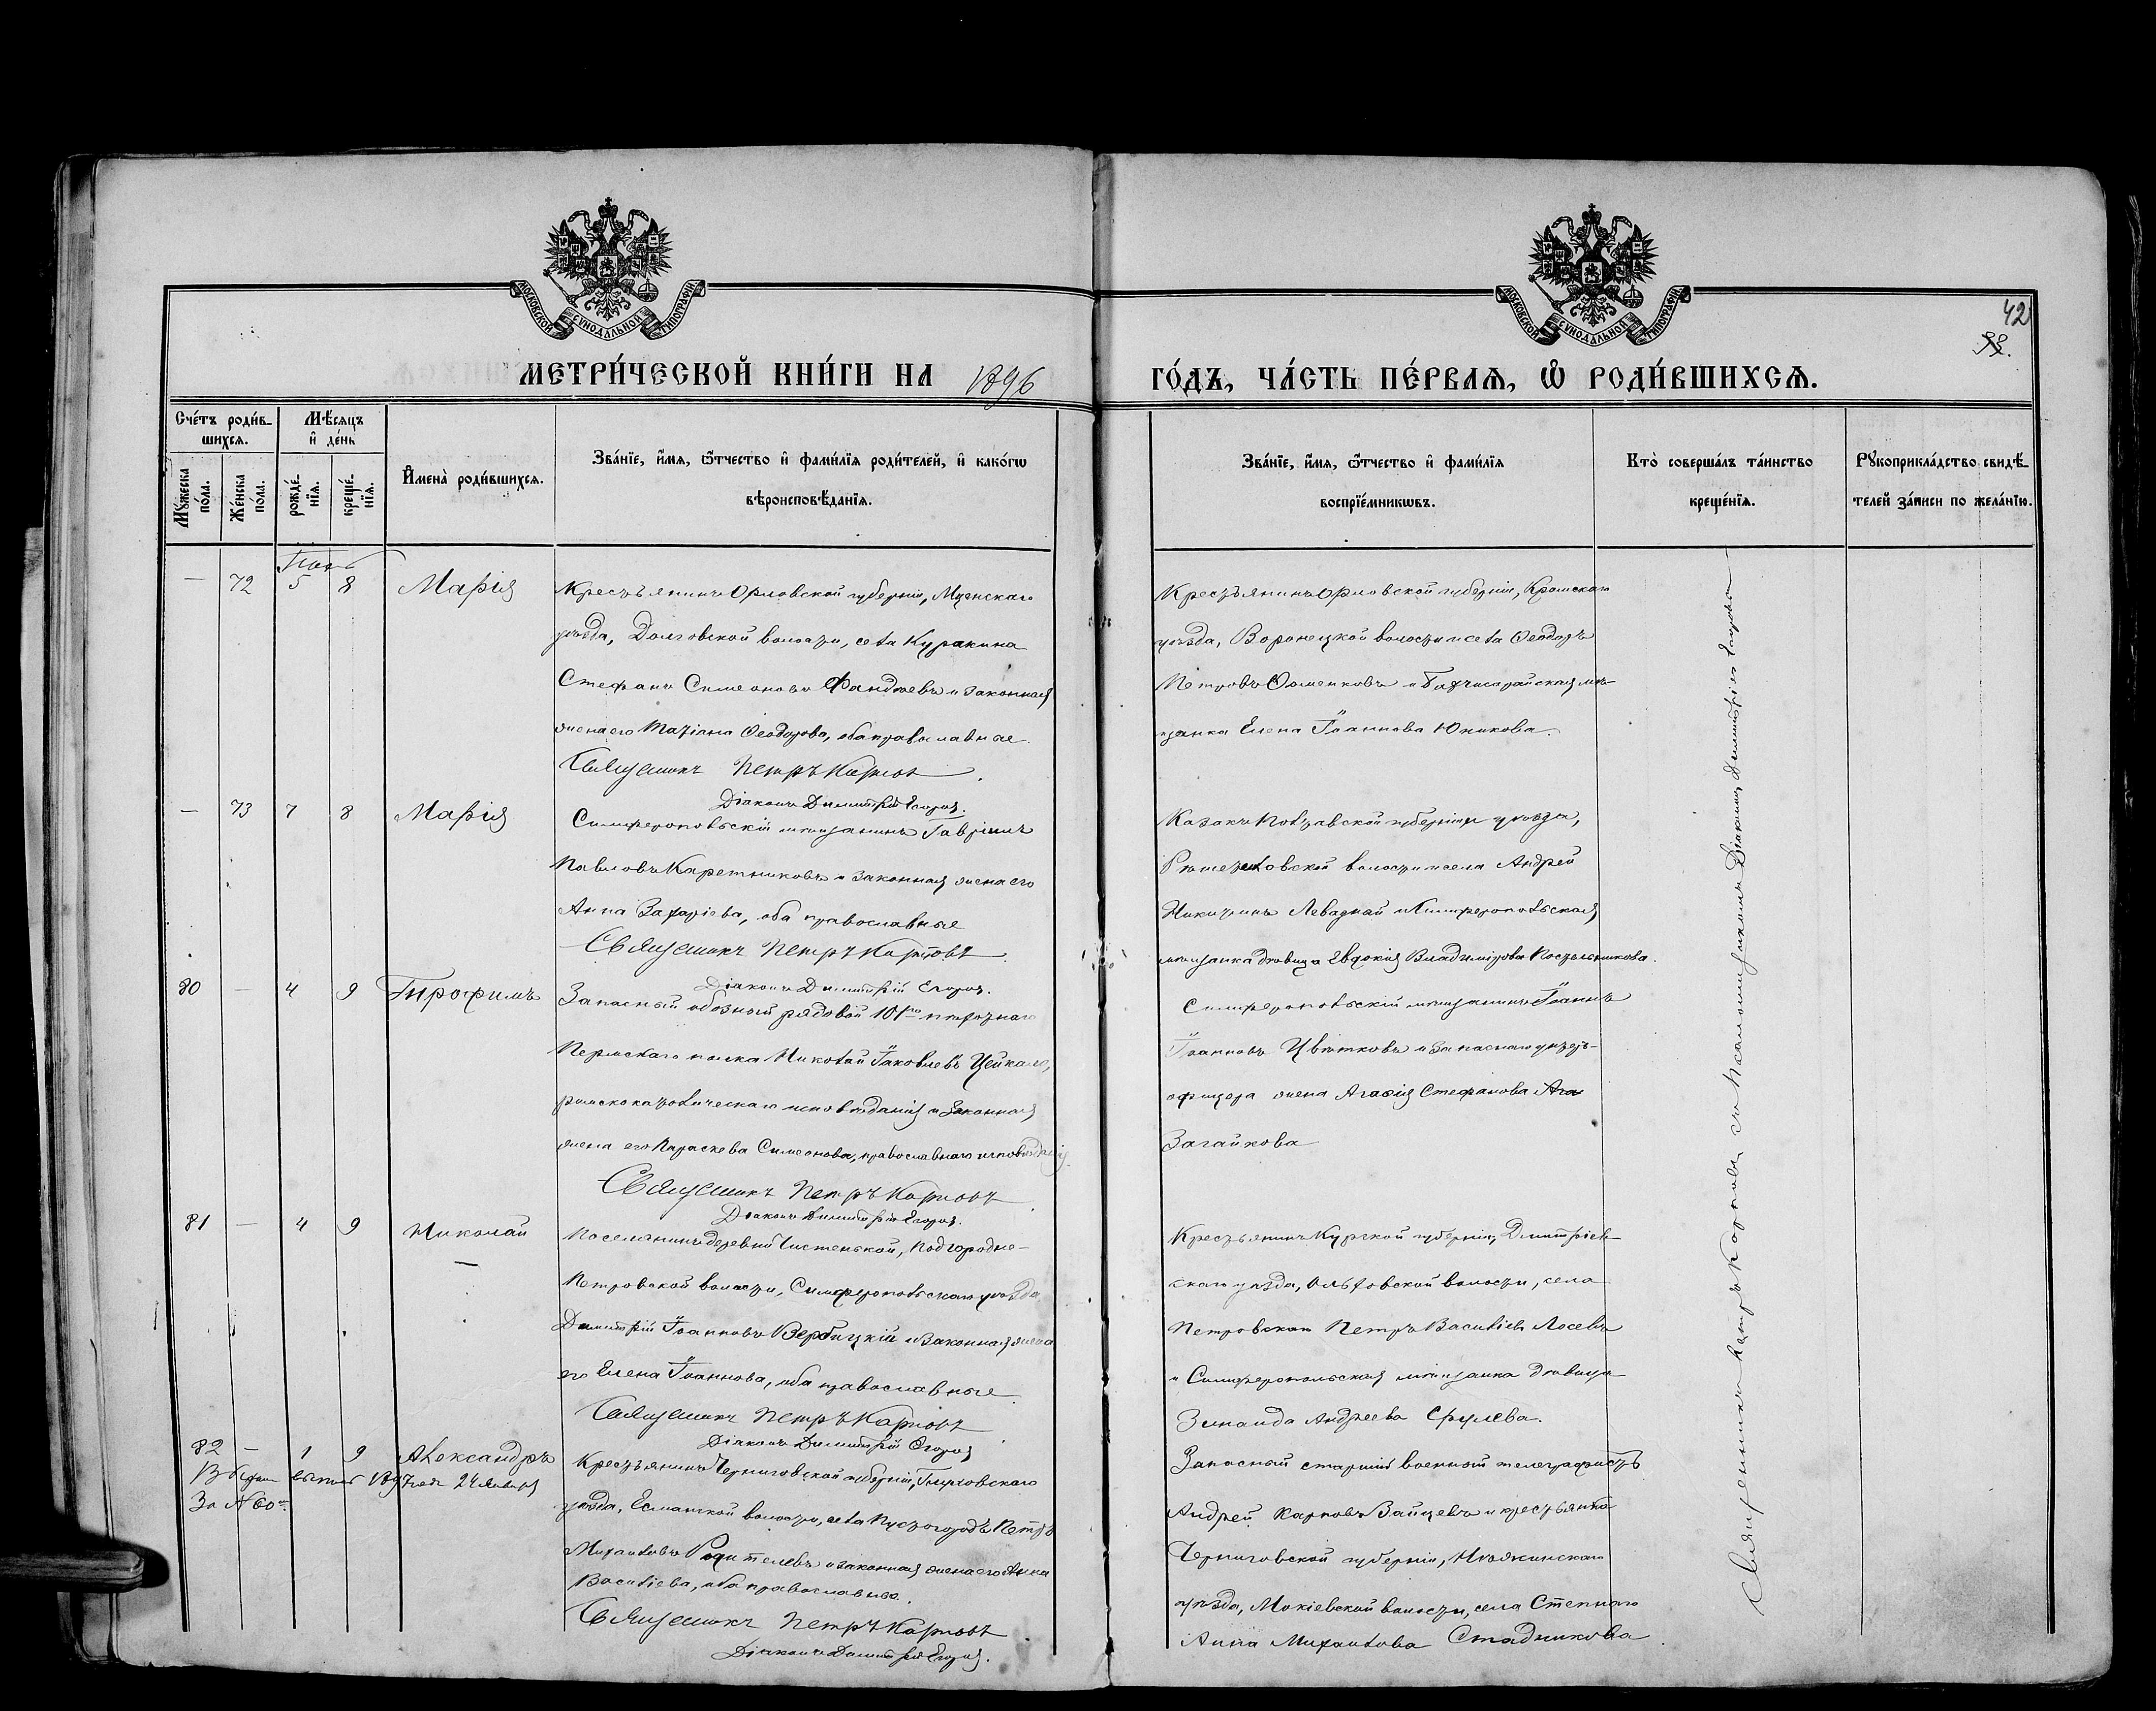 МОСКОВСКОЙ СѴНОДАЛЬНОЙ ТИПОГРАФІИ
МОСКОВСКОЙ СѴНОДАЛЬНОЙ ТИПОГРАФІИ
42
МЕТРИ́ЧЕСКОЙ КНИ́ГИ НА 1896
ГО́ДЪ, ЧА́СТЬ ПЕ́РВАЯ, Ѡ РОДИ́ВШИХСЯ.
Сче́тъ роди́в-
шихся.
Мѣ́сяцъ
и де́нь
Му́жеска по́ла.
Же́нска по́ла.
рожде́-нія.
креще́-нія.
Имена̀ роди́вшихся.
Зва́ніе, и́мя, ѻ́тчество и фами́лія роди́телей, и како́гѡ
вѣроисповѣ́данія.
Зва́ніе, и́мя, ѻ́тчество и фами́лія
воспріе́мникѡвъ.
Кто̀ соверша́лъ та́инство
креще́нія.
Рꙋкоприкла́дство свидѣ́-
телей за́писи по жела́нію.
— 72 5 8 Марія
Крестьянинъ Орловской губерніи, Мценскаго
уѣзда, Долговской волости, села Куракина
Стефанъ Симеоновъ Фандѣевъ и законная
жена его Татіана Ѳеодорова, оба православные
Священникъ Петръ Карповъ
Діаконъ Димитрій Егоров.
Крестьянинъ Орловской губерніи, Кромскаго
уѣзда, Воронецкой волости и села Ѳеодоръ
Петровъ Ѳоменковъ и Бахчисарайская мѣ-
щанка Елена Іоаннова Юшкова.
— 73 7 8 Марія
Симферопольскій мѣщанинъ Гавріилъ
Павловъ Каретниковъ и законная жена его
Анна Захаріева, оба православные
Священникъ Петръ Карповъ
Діаконъ Димитрій Егоров.
Казакъ Полтавской губерніи и уѣзда,
Рѣшетиловской волости и села Андрей
Никитинъ Левадный и Симферопольская
мѣщанка дѣвица Евдокія Владимірова Постельникова.
80 — 4 9 Трофимъ
Запасный обозный рядовой 101го пѣхотнаго
Пермскаго полка Николай Іаковлевъ
римско католическаго исповѣданія и законная
жена его Параскева Симеонова, православнаго исповѣданія.
Священникъ Петръ Карповъ
Діаконъ Димитрій Егоров.
Симферопольскій мѣщанинъ Іоаннъ
Іоанновъ Цвѣтковъ и запаснаго унтеръ-
офицера жена Агаѳія Стефанова
Загайкова
81 — 4 9 Николай
Поселянинъ деревни Чистенькой, Подгородне-
Петровской волости, Симферопольскаго уѣзда
Димитрій Іоанновъ Вербицкій и законная жена
его Елена Іоаннова, оба православные
Священникъ Петръ Карповъ
Діаконъ Димитрій Егоров
Крестьянинъ Курской губерніи, Дмитріев-
скаго уѣзда, Ольховской волости, села
Петровскаго Петръ Василіевъ Лосевъ
и Симферопольская мѣщанка дѣвица
Зинаида Андреева
82 — 1 9 Александръ
выпись 1897 года 24 Января
За № 60м.
Крестьянинъ Черниговской губерніи, Глуховскаго
уѣзда, Есманской волости, села Пустогородъ Петръ
Михаиловъ и законная жена его Анна
Василіева, оба православные.
Священникъ Петръ Карповъ
Діаконъ Димитрій Егоров.
Запасный старшій военный телеграфистъ
Андрей Карповъ Зайцевъ и крестьянка
Черниговской губерніи, Нѣжинскаго
уѣзда, Мокіевской волости, села Степнаго
Анна Михаилова Стадникова
Священникъ Петръ Карповъ съ Псаломщикомъ Діакономъ Димитріемъ